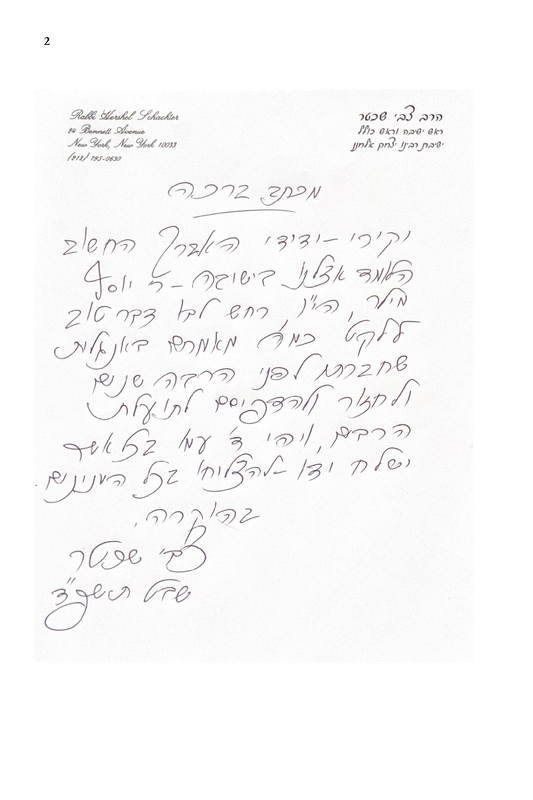 2
Rabbi Hershel Schachter
24 Bennett Avenue
New York, New York 10033
(212) 795-0630
הרב צבי שכטר
ראש ישיבה וראש כולל
ישיבת רבנו יצחק אלחנן
מכתב ברכה
יקירי - ידידי האברך החשוב
הלומד אצלנו בישיבה - ר' יוסף
מילר, הי"ו, רחש לבו דבר טוב
ללקט כמה מאמרים באנגלית
שחברתי לפני הרבה שנים
ולחזור ולהדפיסם לתועלת
הרבים, ויהי ד' עמו בכל אשר
ישלח ידו - להצליחו בכל הענינים.
בהוקרה,
צבי שכטר
שבט תשפ"ד